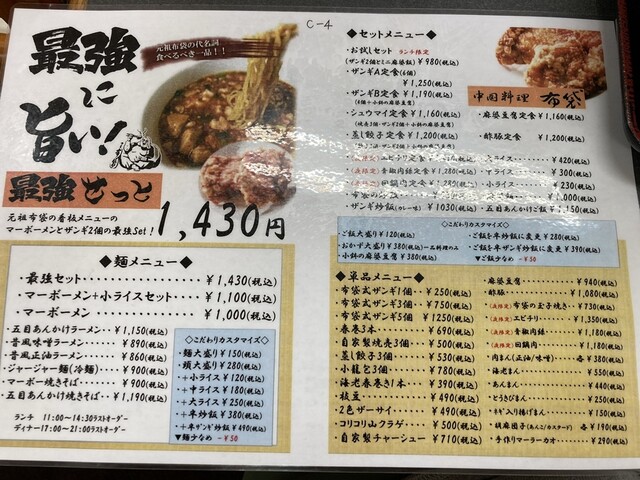 C-4
最強に旨い!
元祖布袋の代名詞
食べるべき一品!!
最強せっと
元祖布袋の看板メニューの
マーボーメンとザンギ2個の最強Set!
1,430円
◆麺メニュー◆
・最強セット ¥1,430(税込)
・マーボーメン+小ライスセット ¥1,100(税込)
・マーボーメン ¥1,000(税込)
・五目あんかけラーメン ¥1,150(税込)
・昔風味噌ラーメン ¥890(税込)
・昔風正油ラーメン ¥860(税込)
・ジャージャー麺(冷麺) ¥900(税込)
・マーボー焼きそば ¥900(税込)
・五目あんかけ焼きそば ¥1,190(税込)
ランチ 11:00~14:30ラストオーダー
ディナー17:00~21:00ラストオーダー
◇こだわりカスタマイズ◇
・麺大盛り ¥150(税込)
・頬大盛り ¥280(税込)
・+小ライス ¥120(税込)
・+中ライス ¥180(税込)
・+大ライス ¥250(税込)
・+半炒飯 ¥380(税込)
・+半ザンギ炒飯 ¥490(税込)
▼麺少なめ -50
◆セットメニュー◆
・お試しセット ランチ限定
(ザンギ2個とミニ麻婆飯) ¥980(税込)
・ザンギA定食(6個)
¥1,250(税込)
・ザンギB定食 ¥1,190(税込)
(4個+小鉢の麻婆豆腐)
・シュウマイ定食 ¥1,160(税込)
・蒸し餃子定食 ¥1,200(税込)
エビチリ定食
青椒肉絲定食 ¥1,280(税込)
回鍋肉定食 ¥1,180(税込)
・ザンギ炒飯(カレー味) ¥1030(税込)
中国料理 布袋
・麻婆豆腐定食 ¥1,160(税込)
・酢豚定食 ¥1,200(税込)
大ライス ¥420(税込)
中ライス ¥300(税込)
小ライス ¥230(税込)
・五目あんかけご飯 ¥1,150(税込)
◇こだわりカスタマイズ◇
・ご飯大盛り ¥120(税込)
・おかず大盛り ¥380(税込)一品料理のみ
・小鉢の麻婆豆腐 ¥380(税込)
・ご飯を半炒飯に変更 ¥280(税込)
・ご飯を半ザンギ炒飯に変更 ¥390(税込)
▼ご飯少なめ -50
◆単品メニュー◆
・布袋式ザンギ1個 ¥250(税込)
・布袋式ザンギ3個 ¥750(税込)
・布袋式ザンギ5個 ¥1250(税込)
・春巻3本 ¥690(税込)
・自家製焼売3個 ¥500(税込)
・蒸し餃子3個 ¥530(税込)
・小龍包3個 ¥780(税込)
・海老春巻き1本 ¥390(税込)
・枝豆 ¥490(税込)
・2色ザーサイ ¥490(税込)
・コリコリ山クラゲ ¥500(税込)
・自家製チャーシュー ¥710(税込)
・麻婆豆腐 ¥940(税込)
・酢豚 ¥1,080(税込)
・布袋の玉子焼き ¥730(税込)
エビチリ ¥1,350(税込)
青椒肉絲 ¥1,180(税込)
回鍋肉 ¥1,180(税込)
・肉まん(正油/味噌) 各¥380(税込)
・海老まん ¥550(税込)
・あんまん ¥440(税込)
・とうきびまん ¥250(税込)
・ネギ入り揚げまん ¥150(税込)
・胡麻団子(あんこ/カスタード) 各¥190(税込)
・手作りマーラーカオ ¥290(税込)